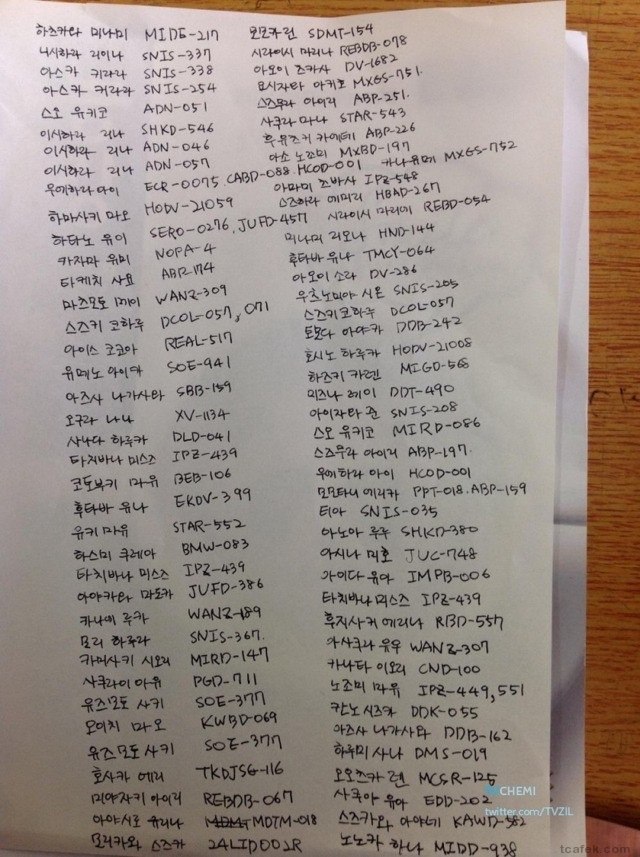 하즈키라 미나미 MIDE-217
니시하라 리이나 SNIS-337
아스카 키라라 SNIS-338
아스카 키라라 SNIS-254
스오 유키코 ADN-051
이시하라 리나 SHKD-546
이시하라 리나 ADN-046
이시하라 리나 ADN-057
우에하라 아이 ECR-0075, CABD-088. HCOD-001
하마사키 마오 HODV-21059
하타노 유이 SERO-0276, JUFD-457
카자마 유미 NOPA-4
타케치 사요 ABP-174
마츠모토 메이 WANZ-309
스즈키 코하루 DCOL-057, 071
아이스 코코아 REAL-517
유메노 아이카 SOE-941
아즈사 나가사와 SBB-159
오구라 나나 XV-1134
사나다 하루카 DLD-041
타치바나 미스즈 IPZ-439
코토부키 마유 BEB-106
후타바 유나 EKDV-399
유키 마유 STAR-552
하스미 쿠레아 BMW-083
타치바나 미스즈 IPZ-439
아야카와 마도카 JUFD-386
카나에 루카 WANZ-189
모리 하루라 SNIS-367.
카미사키 시오리 MIRD-147
사쿠라이 아유 PGD-711
유즈모토 사키 SOE-377
모이치 마오 KWBD-069
유즈모토 사키 SOE-377
호사카 에리 TKDJSG-116
미야자키 아이리 REBDB-067
아야시로 유리나 MDTM-018
모리카와 스즈카 24LID002R
모모카 린 SDMT-154
시라이시 마리나 REBDB-078
아오이 츠카사 DV-1682
요시자와 아키호 MXGS-751.
스즈무라 아이리 ABP-251.
사쿠라 마나 STAR-543
후유츠키 카에데 ABP-226
아소 노조미 MXBD-197
카나 유메 MXGS-752
아마미 츠바사 IPZ-548
스즈하라 에미리 HBAD-267
시라이시 마리에 REBD-054
미나미 리오나 HND-144
후타바 유나 TMCY-064
아오이 소라 DV-286
우츠노미야 시온 SNIS-205
스즈키 코하루 DCOL-057
토모다 아야카 DDB-242
호시노 하루카 HODV-21008
하즈키 카렌 MIGD-568
미즈나 레이 DDT-490
아이자와 준 SNIS-208
스오 유키코 MIRD-086
스즈무라 아이리 ABP-197.
우에하라 아이 HCOD-001
모모타니 에리카 PPT-018. ABP-159
티아 SNIS-035
아노아 루루 SHKD-380
아시나 미호 JUC-748
아이다 유아 IMPB-006
타치바나 미스즈 IPZ-439
후지사키 에리나 RBD-557
아사쿠라 유우 WANZ-307
카나타 이오리 CND-100
노조미 마유 IPZ-449, 551
칸노 시즈카 DDK-055
아즈사 나가사와 DDB-162
하루미 사나 DMS-019
오오츠카 렌 MCSR-125
사쿠아 유아 EDD-202
스즈카와 아야네 KAWD-582
노노카 하나 MIDD-938
CHEMI
twitter.com/TVZIL
tcafek.com